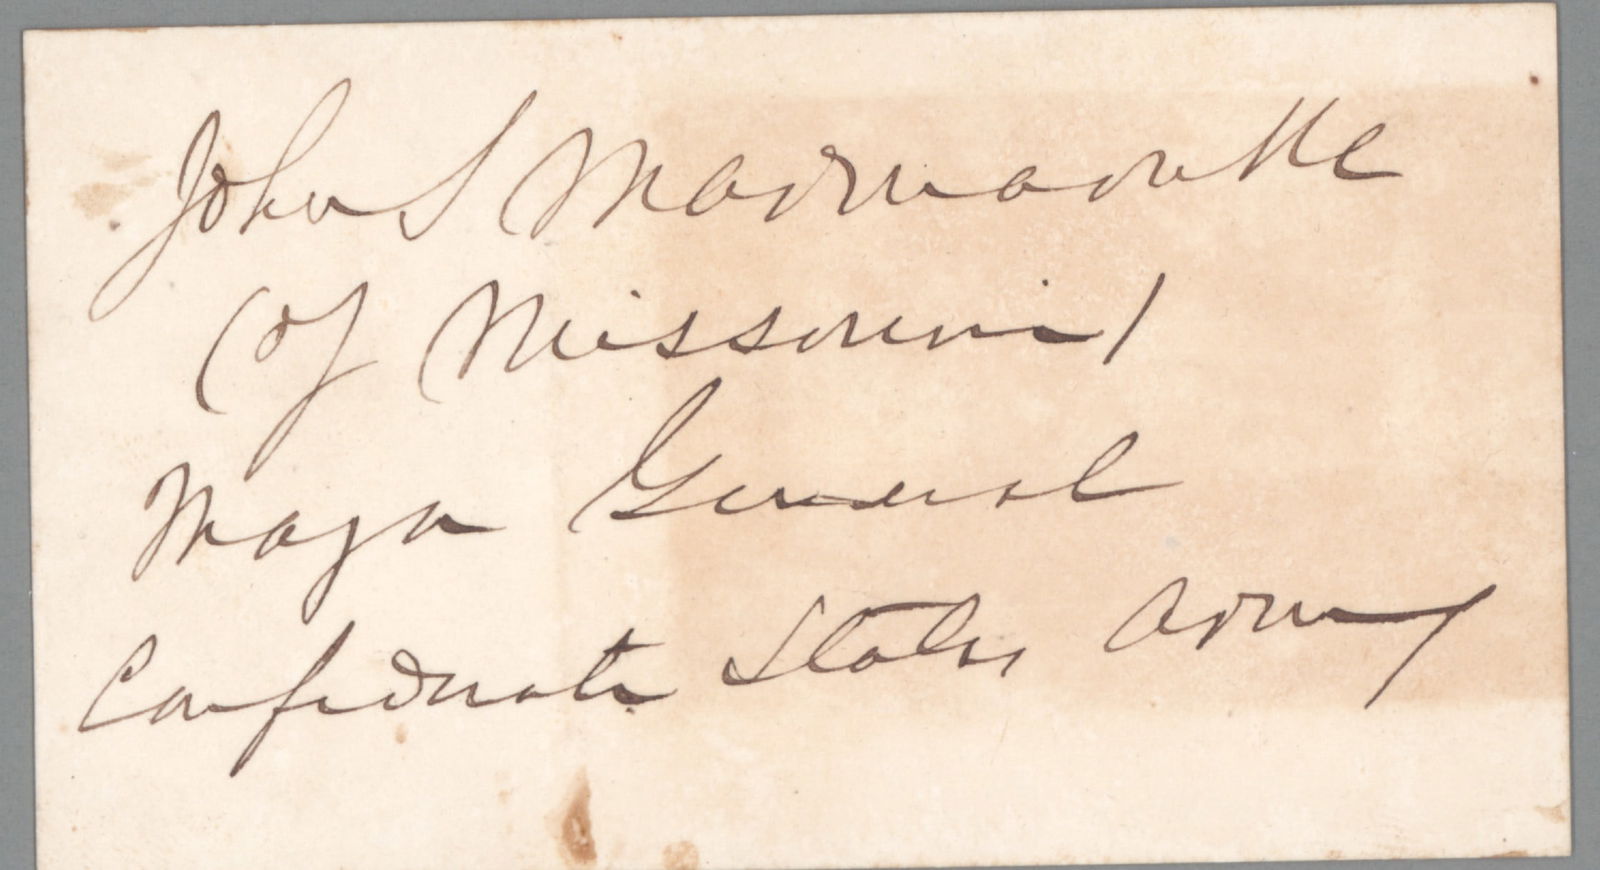 John S Marmaduke
(of Missouri)
Major General
Confederate States Army